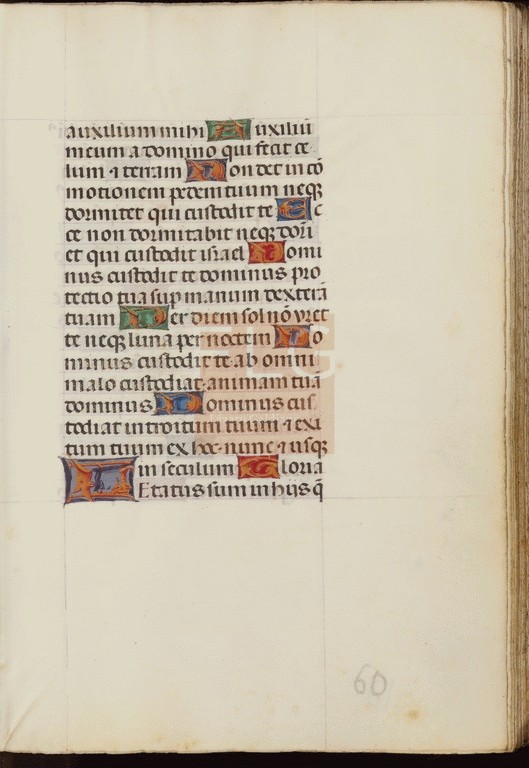 auxilium mihi Auxiliū
meum a domino qui fecit ce
lum ⁊ terram Non det in cō
motionem pedem tuum neqꝫ
dormitet qui custodit te Ec
ce non dormitabit neqꝫ dori
et qui custodit israel Domi
nus custodit te dominus pro
tectio tua sup manum dexterā
tuam Per diem sol nō vret
te neqꝫ luna per noctem Do
minus custodit te ab omni
malo custodiat animam tuā
dominus Dominus cus
todiat introitum tuum ⁊ exi
tum tuum ex hoc nunc ⁊ usqꝫ
in seculum Gloria
LEtatus sum in hiis q̄
FLG
60